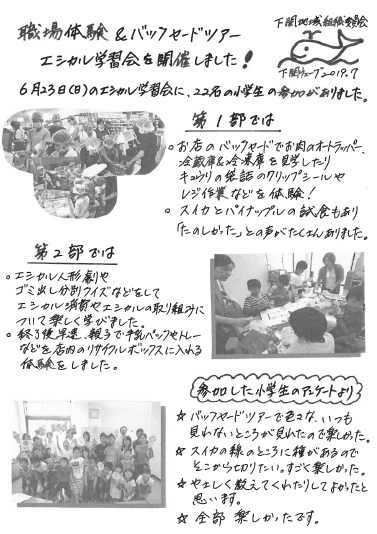 下関地域組織委員会
職場体験&バックヤードツアー
エシカル学習会を開催しました!
下関ウェーブ2019.7
6月23日(日)のエシカル学習会に、22名の小学生の参加がありました。
第1部では
○お店のバックヤードでお肉のオートラッパー、
冷蔵庫&冷凍庫を見学したり
キュウリの袋詰のクリップシールや
レジ作業などを体験!
○スイカとパイナップルの試食もあり
「たのしかった」との声がたくさんありました。
第2部では
○エシカル人形劇や
ゴミ出し分別クイズなどをして
エシカル消費やエシカルの取り組みに
ついて楽しく学びました。
○終了後早速、親子で牛乳パックやトレー
などを店内のリサイクルボックスに入れる
体験をしました。
参加した小学生のアンケートより
☆バックヤードツアーで色々な、いつも
見れないところが見れたので楽しかった。
☆スイカの緑のところに種があるので
そこから切りたい。すごく楽しかった。
☆やさしく教えてくれたりしてよかったと
思います。
☆全部楽しかったです。